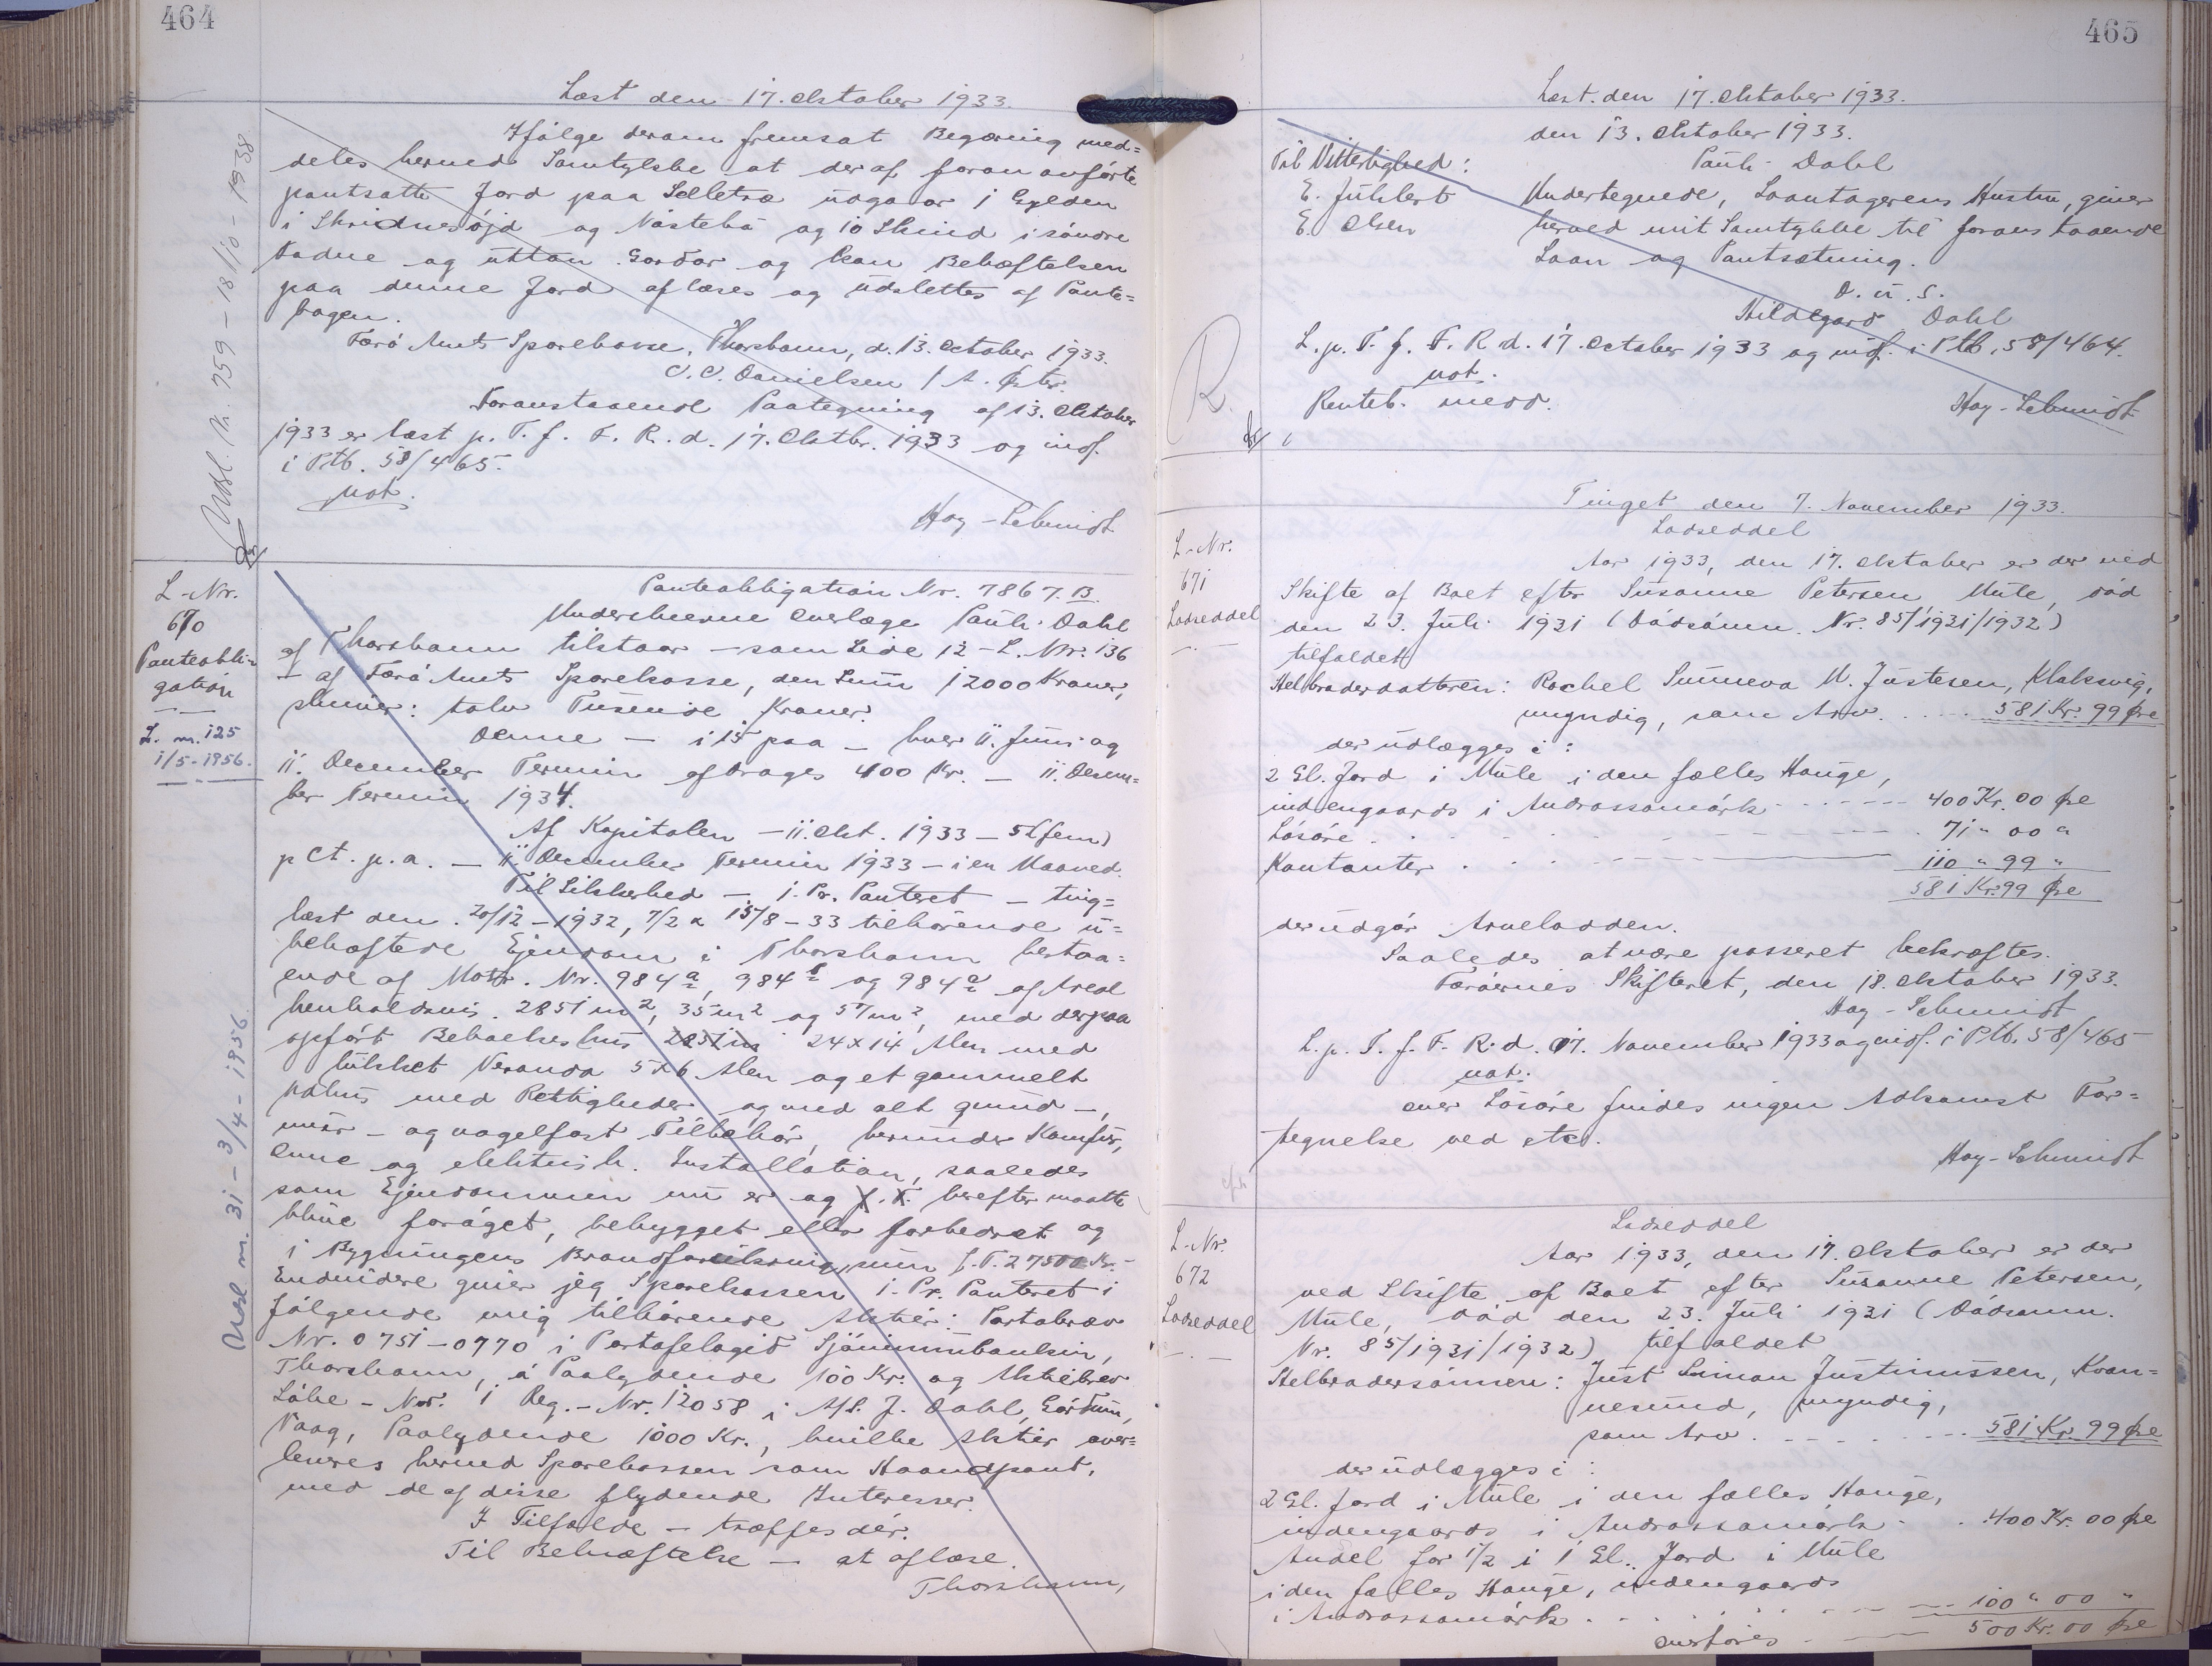 464
Læst den 17. Oktober 1933.
Ifølge derom fremsat Begæring med=
deles herved Samtykke at der af foran anførte
pantsatte Jord paa Selletræ udgaar 1 Gylden
i Skridnesøjd og Nástebá og 10 Skind i søndre
og úttan Gardar og kan Behæftelsen
paa denne Jord aflæses og udslettes af Pante=
bogen.
Færø Amts Sparekasse, Thorshavn, d. 13. October 1933.
C.C. Danielsen / A. Øster.
Foranstaaende Paategning af 13. Oktober
1933 er læst p. T. f. F. R. d. 17. Oktbr. 1933 og indf.
i Ptb. 58/465.
not.
Hoy-Schmidt
Udsl. Nr. 759 - 18/10 - 1938
L-Nr.
670
Panteobli-
gation
L. nr. 125
1/5-1956.
Udsl. nr. 31 - 3/4 - 1956.
Panteobligation Nr. 7867. B.
Underskrevne Overlæge Pauli Dahl
af Thorshavn tilstaar - som Side 12 - L. Nr. 136
- af Færø Amts Sparekasse, den Sum 12000 Kroner,
skriver: tolv Tusende Kroner.
Denne - i 15 paa - hver 11. Juni og
11. December Termin afdrages 400 Kr. - 11. Decem=
ber Termin 1934.
Af Kapitalen - 11. Okt. 1933 - 5 (fem)
pCt. p.a. - 11. December Termin 1933 - i en Maaned.
Til Sikkerhed - 1. Pr. Panteret - ting=
læst den 20/12-1932, 7/2 & 15/8-33 tilhørende u=
behæftede Ejendom i Thorshavn bestaa=
ende af Matr. Nr. 984a, 984b og 984c af Areal
henholdsvis 2851 m2, 35 m2 og 57 m2, med derpaa
opført Beboelseshus 2851 m 24x14 Alen med
lukket Veranda 5x6 Alen og et gammelt
med Rettigheder og med alt grund-,
mur- og nagelfast Tilbehør, herunder Komfur,
Ovne og elektrisk Installation, saaledes
som Ejendommen nu er og herefter maatte
blive forøget, bebygget eller forbedret og
i Bygningens Brandforsikringssum f.T. 27500 Kr.-
Endvidere giver jeg Sparekassen 1. Pr. Panteret i
følgende mig tilhørende Aktier: Partabræv
Nr. 0751-0770 i Partafelagid Sjóvinnubankin,
Thorshavn, á Paalydende 100 Kr. og Aktiebrev
Løbe-Nr. 1 Reg.-Nr. 12058 i A/S. J. Dahl,
Vaag, Paalydende 1000 Kr., hvilke Aktier over=
leveres herved Sparekassen som Haandpant,
med de af disse flydende Interesser.
I Tilfælde - træffes dér.
Til Bekræftelse - at aflæse.
Thorshavn,
465
Læst den 17. Oktober 1933.
den 13. Oktober 1933.
Til Vitterlighed: Pauli Dahl
E. Juhlert Undertegnede, Laantagerens Hustru, giver
E. Olsen herved mit Samtykke til foranstaaende
Laan og Pantsætning.
D. u. S.
Hildegard Dahl
L. p. T. f. F. R. d. 17. October 1933 og indf. i Ptb. 58/464.
not.
Renteb. medd.
Hoy-Schmidt
R.
Tinget den 7. November 1933.
L-Nr.
671
Lodseddel
Lodseddel
Aar 1933, den 17. Oktober er der ved
Skifte af Boet efter Susanne Petersen, Mule, død
den 23. Juli 1931 (Dødsanm. Nr. 85/1931/1932)
tilfaldet
Helbroderdatteren: Rachel Sunneva M. Justesen, Klaksvig,
umyndig, som Arv . . . . 581 Kr. 99 Øre
der udlægges i:
2 Gl. Jord i Mule i den fælles Hauge,
indengaards i Andrassamørk - - - - 400 Kr. 00 Øre
Løsøre . - - - - 71 " 00 "
Kontanter . - - - - 110 " 99 "
581 Kr. 99 Øre
der udgør Arvelodden.
Saaledes at være passeret bekræftes.
Færøernes Skifteret, den 18. Oktober 1933.
Hoy-Schmidt
L. p. T. f. F. R. d. 07. November 1933 og indf. i Ptb. 58/465
not.
over Løsøre findes ingen Adkomst For=
tegnelse ved etc.
Hoy-Schmidt
L-Nr.
672
Lodseddel
Lodseddel
Aar 1933, den 17. Oktober er der
ved Skifte af Boet efter Susanne Petersen,
Mule, død den 23. Juli 1931 (Dødsanm.
Nr. 85/1931/1932) tilfaldet
Helbrodersønnen: Just Simon Justinussen, Kvan=
nesund, myndig,
som Arv . - - - - 581 Kr. 99 Øre
der udlægges i:
2 Gl. Jord i Mule i den fælles Hauge,
indengaards i Andrassamørk - . 400 Kr. 00 Øre
Andel for 1/2 i 1 Gl. Jord i Mule
i den fælles Hauge, indengaards
i Andrassamørk . - - - - 100 " 00 "
overføres - - 500 Kr. 00 Øre